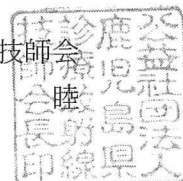 技師会
睦
公益社団法人
鹿児島県
診療放射線
技師会長印